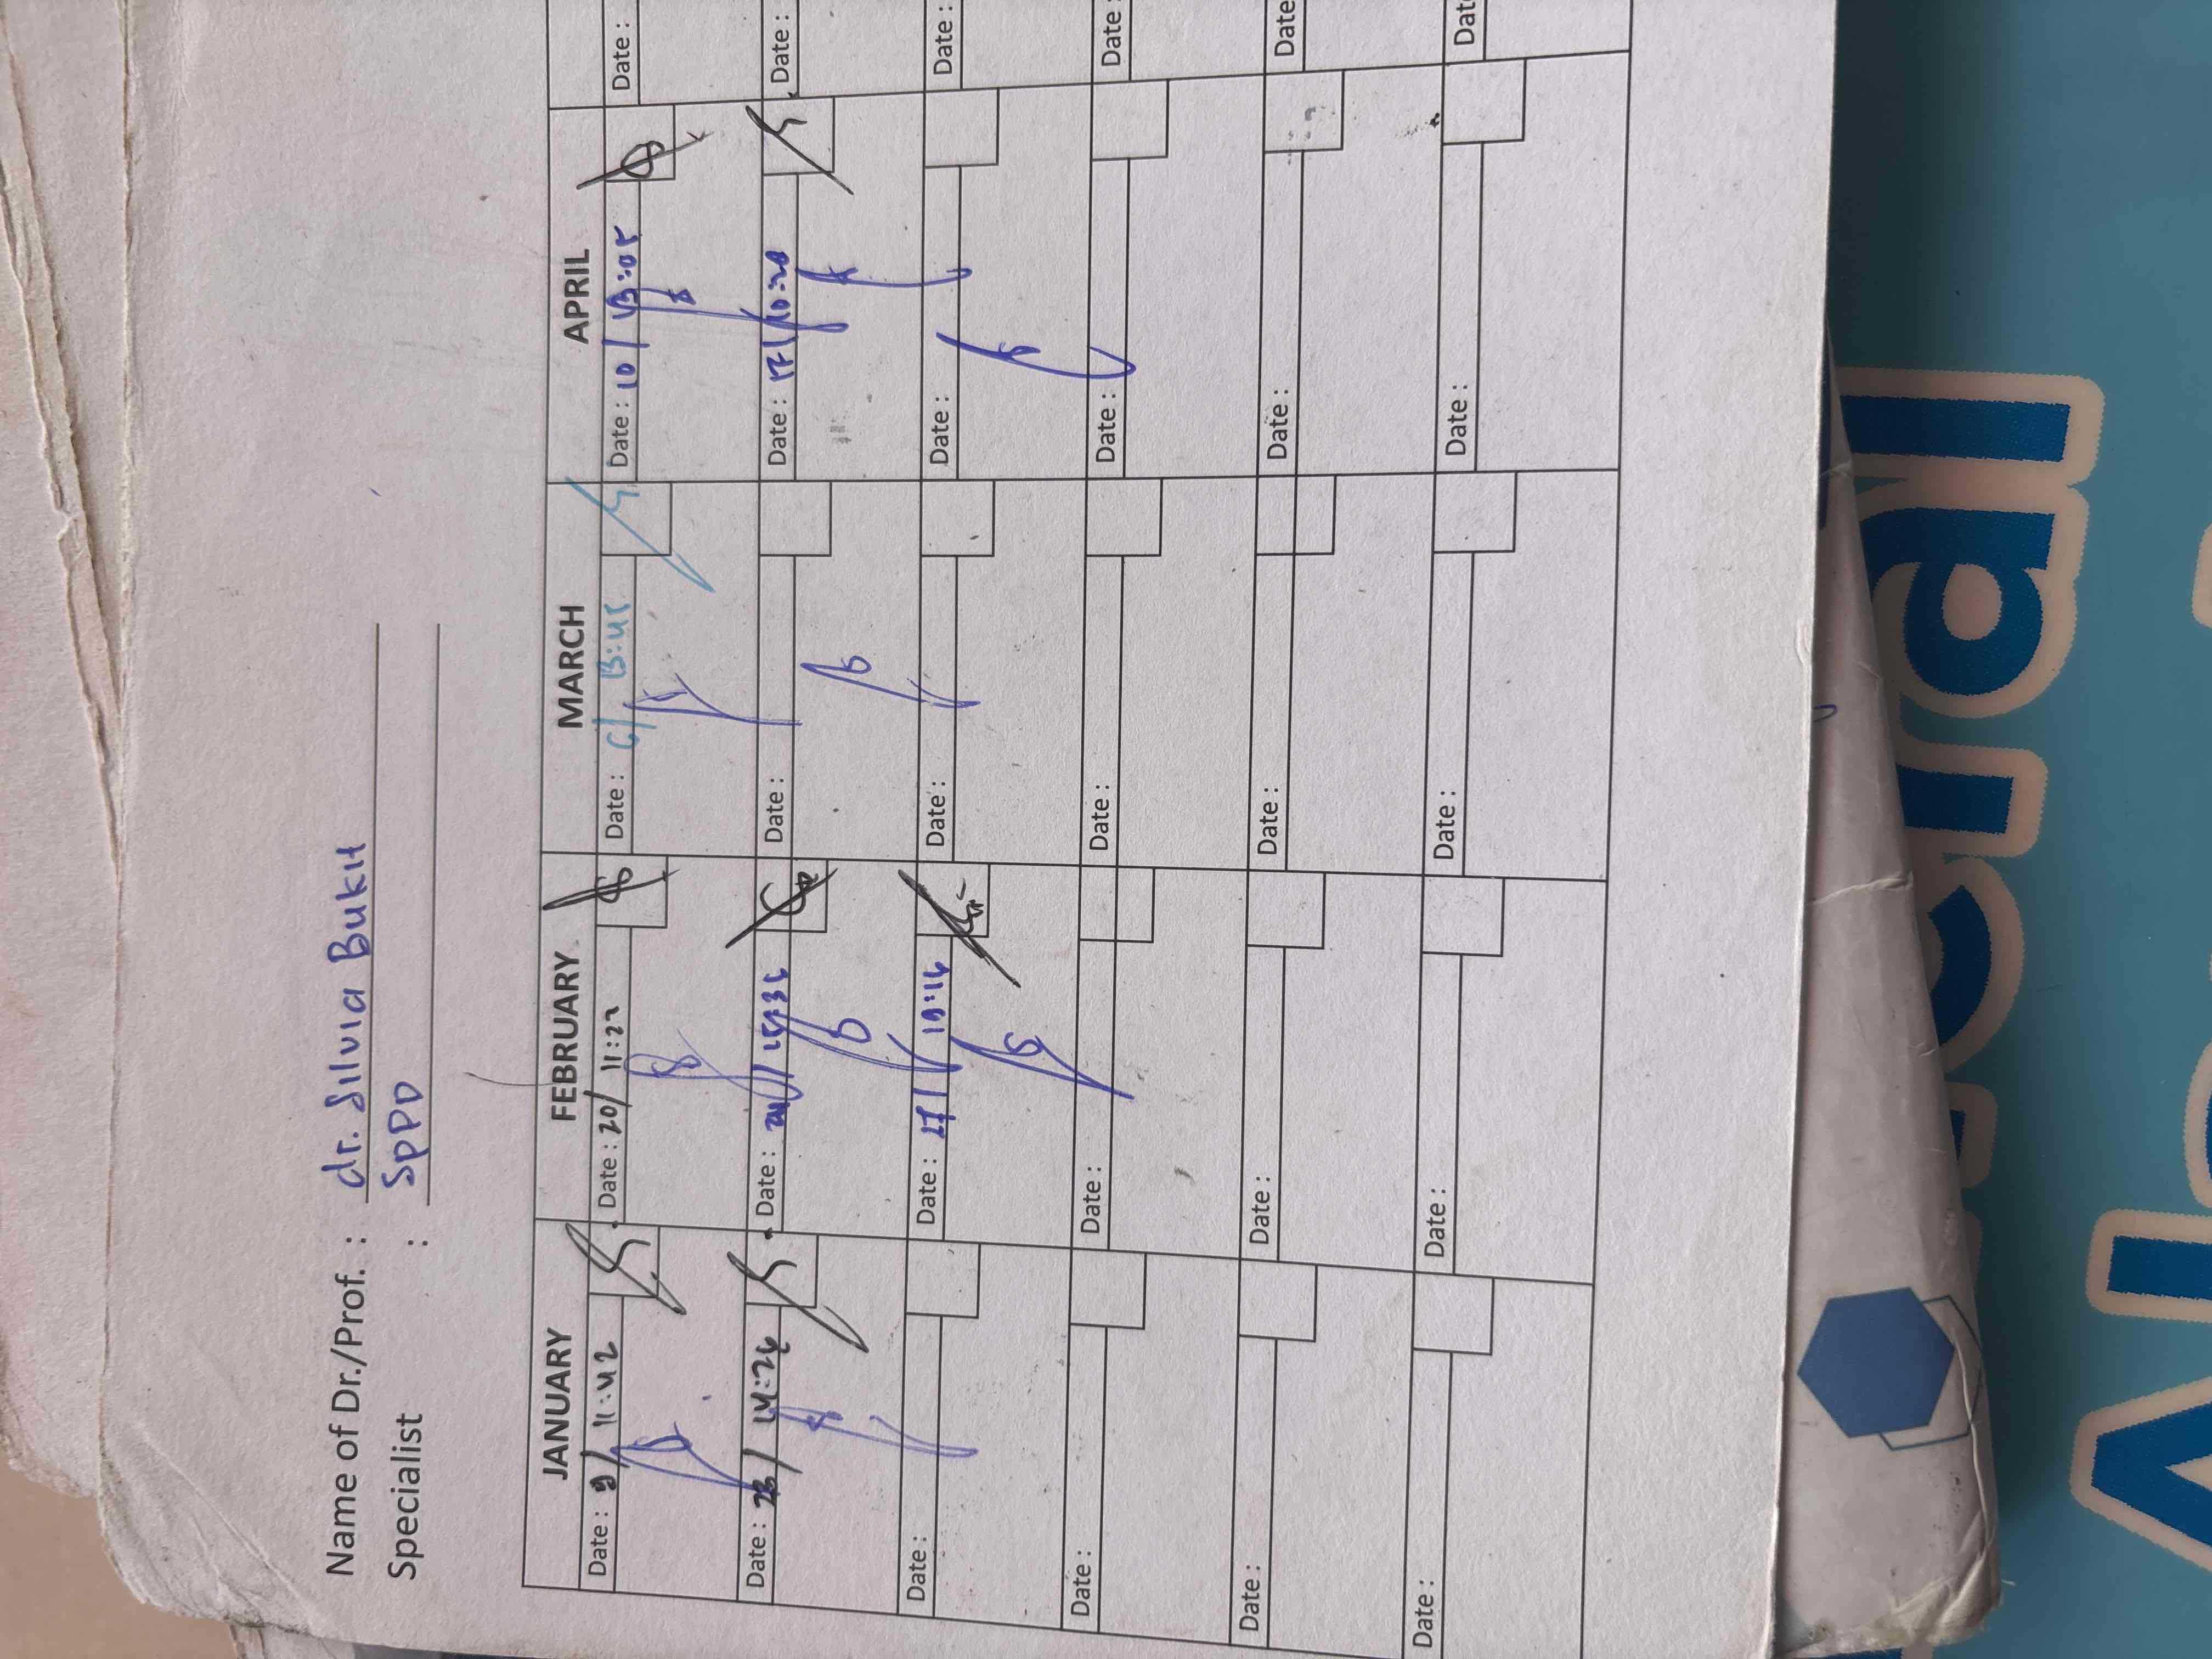 Name of Dr./Prof. : dr. Silvia Bukit
Specialist : SpPD
JANUARY FEBRUARY MARCH APRIL
Date : 9/ 11:42 Date : 20/ 11:22 Date : 6/ 13:45 Date : 10/ 13:05 Date :
Date : 23/ 14:26 Date : 24/ 15:36 Date : Date : 17/ 10:20 Date :
Date : Date : 27/ 19:16 Date : Date : Date :
Date : Date : Date : Date : Date :
Date : Date : Date : Date : Date
Date : Date : Date : Date : Dat